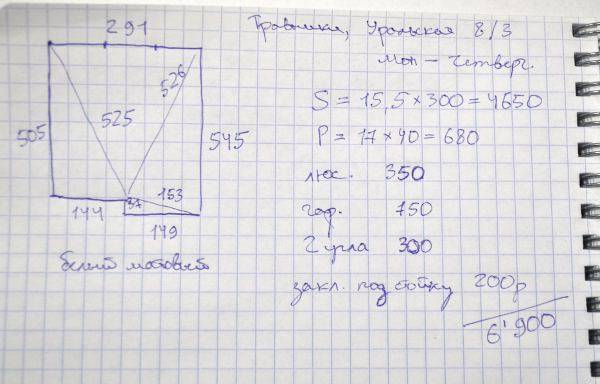 291
Травники, Уральская 8/3
Пон - Четверг.
526
S = 15,5 × 300 = 4650
525
505
545
P = 17 × 40 = 680
люс. 350
153
37
144
гар. 750
149
2 угла 300
белый матовый
закл. под стойку 200р
6'900